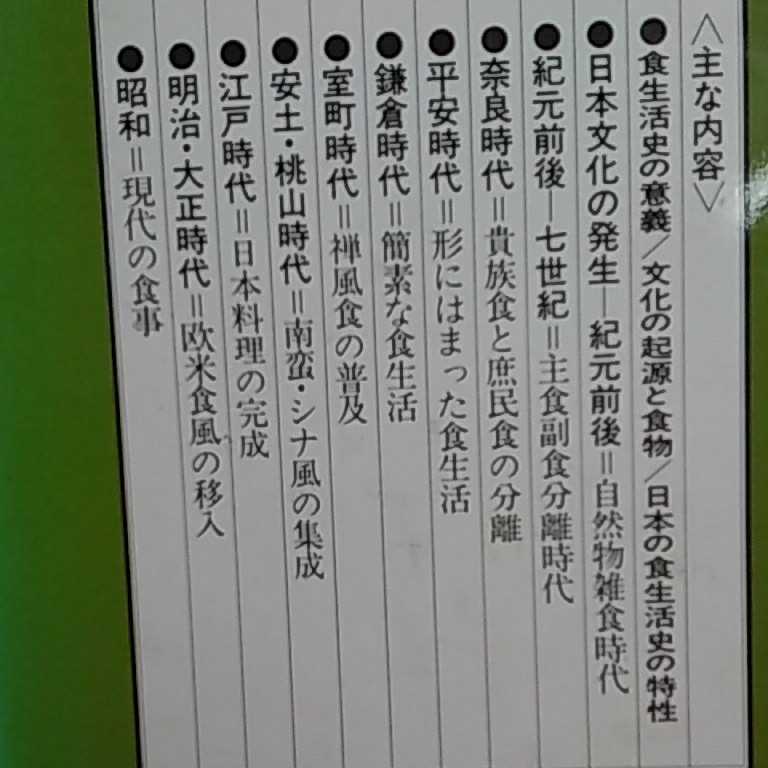 〈主な内容〉
●食生活史の意義/文化の起源と食物/日本の食生活史の特性
●日本文化の発生―紀元前後＝自然物雑食時代
●紀元前後―七世紀＝主食副食分離時代
●奈良時代＝貴族食と庶民食の分離
●平安時代＝形にはまった食生活
●鎌倉時代＝簡素な食生活
●室町時代＝禅風食の普及
●安土・桃山時代＝南蛮・シナ風の集成
●江戸時代＝日本料理の完成
●明治・大正時代＝欧米食風の移入
●昭和＝現代の食事